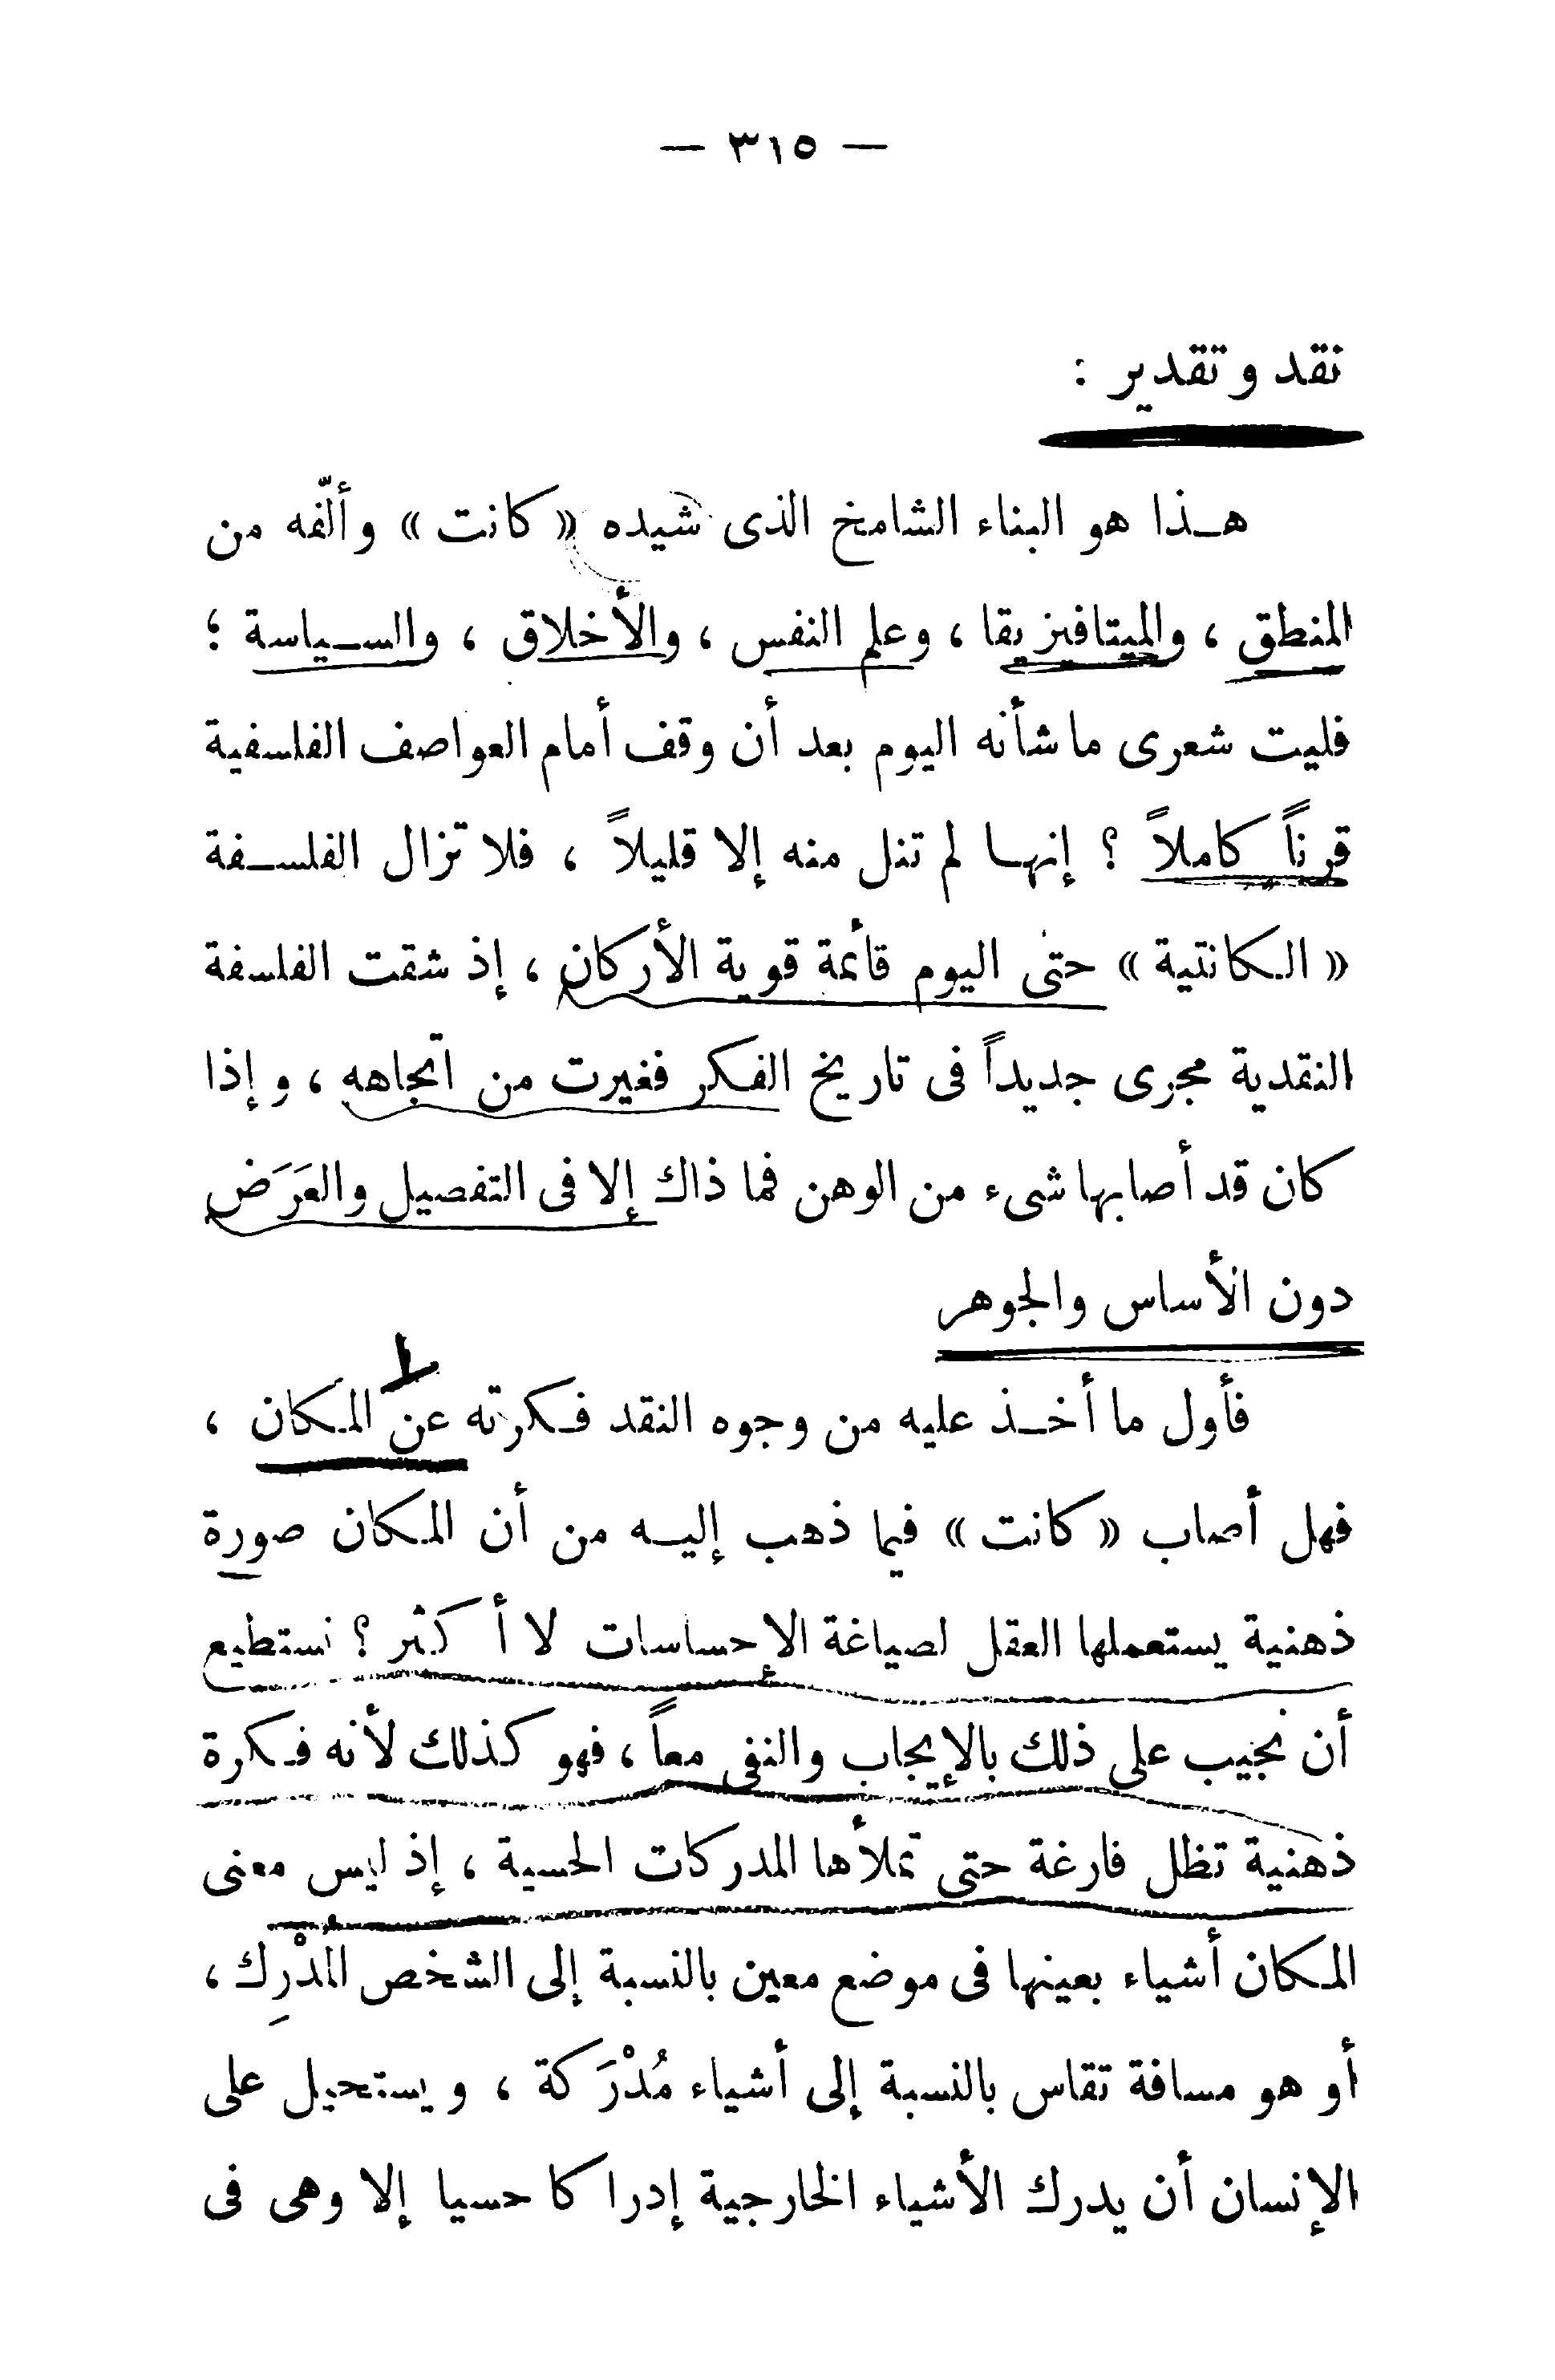 — ٣١٥ —
نقد وتقدير :
هـذا هو البناء الشامخ الذى شيده « كانت » وألّفه من
المنطق ، والميتافيزيقا ، وعلم النفس ، والأخلاق ، والسـياسة ؛
فليت شعرى ما شأنه اليوم بعد أن وقف أمام العواصف الفلسفية
قرناً كاملاً ؟ إنهـا لم تنل منه إلا قليلاً ، فلا تزال الفلسـفة
« الـكانتية » حتى اليوم قائمة قوية الأركان ، إذ شقت الفلسفة
النقدية مجرى جديداً فى تاريخ الفـكر فغيرت من اتجاهه ، وإذا
كان قد أصابها شىء من الوهن فما ذاك إلا فى التفصيل والعَرَض
دون الأساس والجوهر
فأول ما أخـذ عليه من وجوه النقد فـكرته عن المـكان ،
فهل أصاب « كانت » فيما ذهب إليـه من أن المـكان صورة
ذهنية يستعملها العقل لصياغة الإحساسات لا أكثر ؟ نستطيع
أن نجيب على ذلك بالإيجاب والنفى معاً ، فهو كذلك لأنه فـكرة
ذهنية تظل فارغة حتى تملأها المدركات الحسية ، إذ ليس معنى
المـكان أشياء بعينها فى موضع معين بالنسبة إلى الشخص المُدْرِك ،
أو هو مسافة تقاس بالنسبة إلى أشياء مُدْرَكة ، ويستحيل على
الإنسان أن يدرك الأشياء الخارجية إدراكا حسيا إلا وهى فى